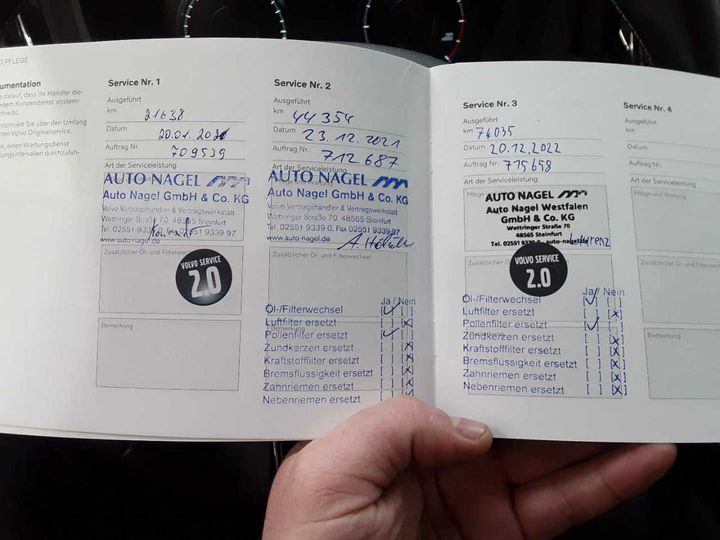 PFLEGE
umentation
e darauf, dass Ihr Händler die-
edem Kundendienst abstem-
nformiert Sie über den Umfang
en Volvo Originalservice.
n, einen Wartungsdienst
Service Nr. 1
Ausgeführt
km 21638
Datum
Auftrag Nr. 709539
Art der Serviceleistung
AUTO NAGEL
Auto Nagel GmbH & Co. KG
Volvo Vertragshändler & Vertragswerkstatt
Wettringer Straße 70, 48565 Steinfurt
Tel. 02551 9339-0, Fax 02551 9339-97
www.auto-nagel.de
Zusätzlicher Öl- und Filterwechsel
VOLVO SERVICE
2.0
Bemerkung
Service Nr. 2
Ausgeführt
km 44354
Datum 23.12.2021
Auftrag Nr. 712687
Art der Serviceleistung
AUTO NAGEL
Auto Nagel GmbH & Co. KG
Volvo Vertragshändler & Vertragswerkstatt
Wettringer Straße 70, 48565 Steinfurt
Tel. 02551 9339-0, Fax 02551 9339-97
www.auto-nagel.de
Zusätzlicher Öl- und Filterwechsel
Ja / Nein
Öl-/Filterwechsel [✓] [ ]
Luftfilter ersetzt [ ] [x]
Pollenfilter ersetzt [✓] [ ]
Zündkerzen ersetzt [ ] [x]
Kraftstofffilter ersetzt [ ] [x]
Bremsflüssigkeit ersetzt [ ] [x]
Zahnriemen ersetzt [ ] [x]
Nebenriemen ersetzt [ ] [x]
Bemerkung
Service Nr. 3
Ausgeführt
km 74035
Datum 20.12.2022
Auftrag Nr. 715658
Art der Serviceleistung
AUTO NAGEL
Auto Nagel Westfalen
GmbH & Co. KG
Wettringer Straße 70
48565 Steinfurt
Tel. 02551 9339-0, auto-nagel.de
Zusätzlicher Öl- und Filterwechsel
VOLVO SERVICE
2.0
Ja / Nein
Öl-/Filterwechsel [✓] [ ]
Luftfilter ersetzt [ ] [x]
Pollenfilter ersetzt [✓] [ ]
Zündkerzen ersetzt [ ] [x]
Kraftstofffilter ersetzt [ ] [x]
Bremsflüssigkeit ersetzt [ ] [x]
Zahnriemen ersetzt [ ] [x]
Nebenriemen ersetzt [ ] [x]
Service Nr. 4
Ausgeführt
km
Datum
Auftrag Nr.
Art der Serviceleistung
Pflege und Wartung
Zusätzlicher Öl- und
Bemerkung